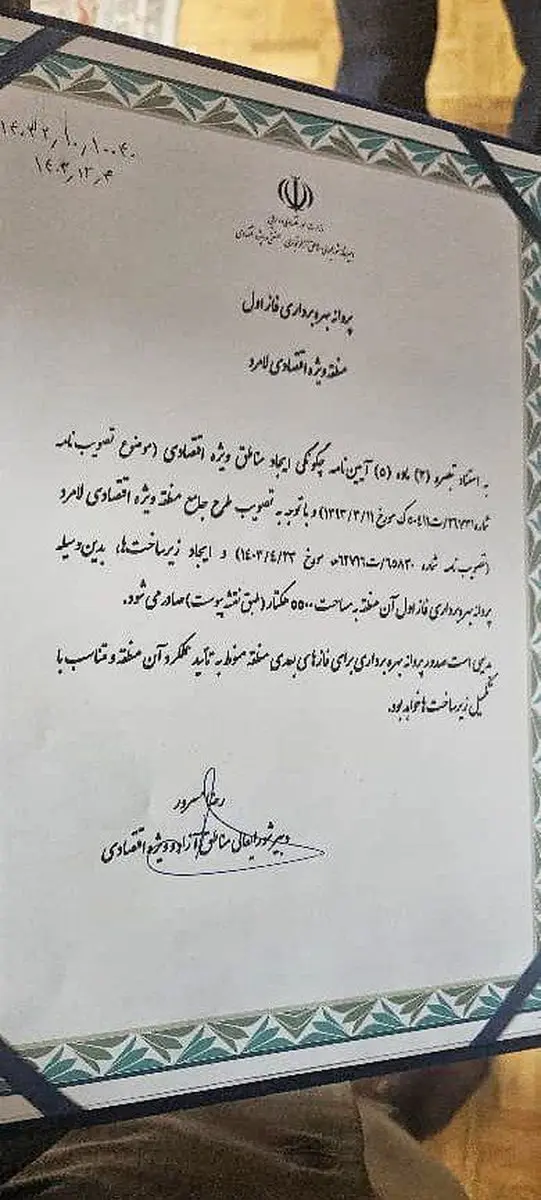 ۱۴۰۳٫۱۲٫۴
وزارت امور اقتصادی و دارایی
دبیرخانه شورایعالی مناطق آزاد تجاری ـ صنعتی و ویژه اقتصادی
پروانه بهره برداری فاز اول
منطقه ویژه اقتصادی لامرد
به استناد تبصره (۲) ماده (۵) آیین‌نامه چگونگی ایجاد مناطق ویژه اقتصادی (موضوع تصویب‌نامه
شماره ک مورخ ۱۳۹۳/۳/۱۱) و با توجه به تصویب طرح جامع منطقه ویژه اقتصادی لامرد
(تصویب نامه شماره ۶۵۸۳۰/ت۶۲۷۶۶هـ مورخ ۱۴۰۳/۴/۲۳) و ایجاد زیرساخت‌ها، بدین‌وسیله
پروانه بهره‌برداری فاز اول آن منطقه به مساحت ۵۵۰۰ هکتار (طبق نقشه پیوست) صادر می شود.
بدیهی است صدور پروانه بهره برداری برای فازهای بعدی منطقه منوط به تأئید عملکرد آن منطقه و متناسب با
تکمیل زیرساخت ها خواهد بود.
رضا مسرور
دبیر شورایعالی مناطق آزاد و ویژه اقتصادی